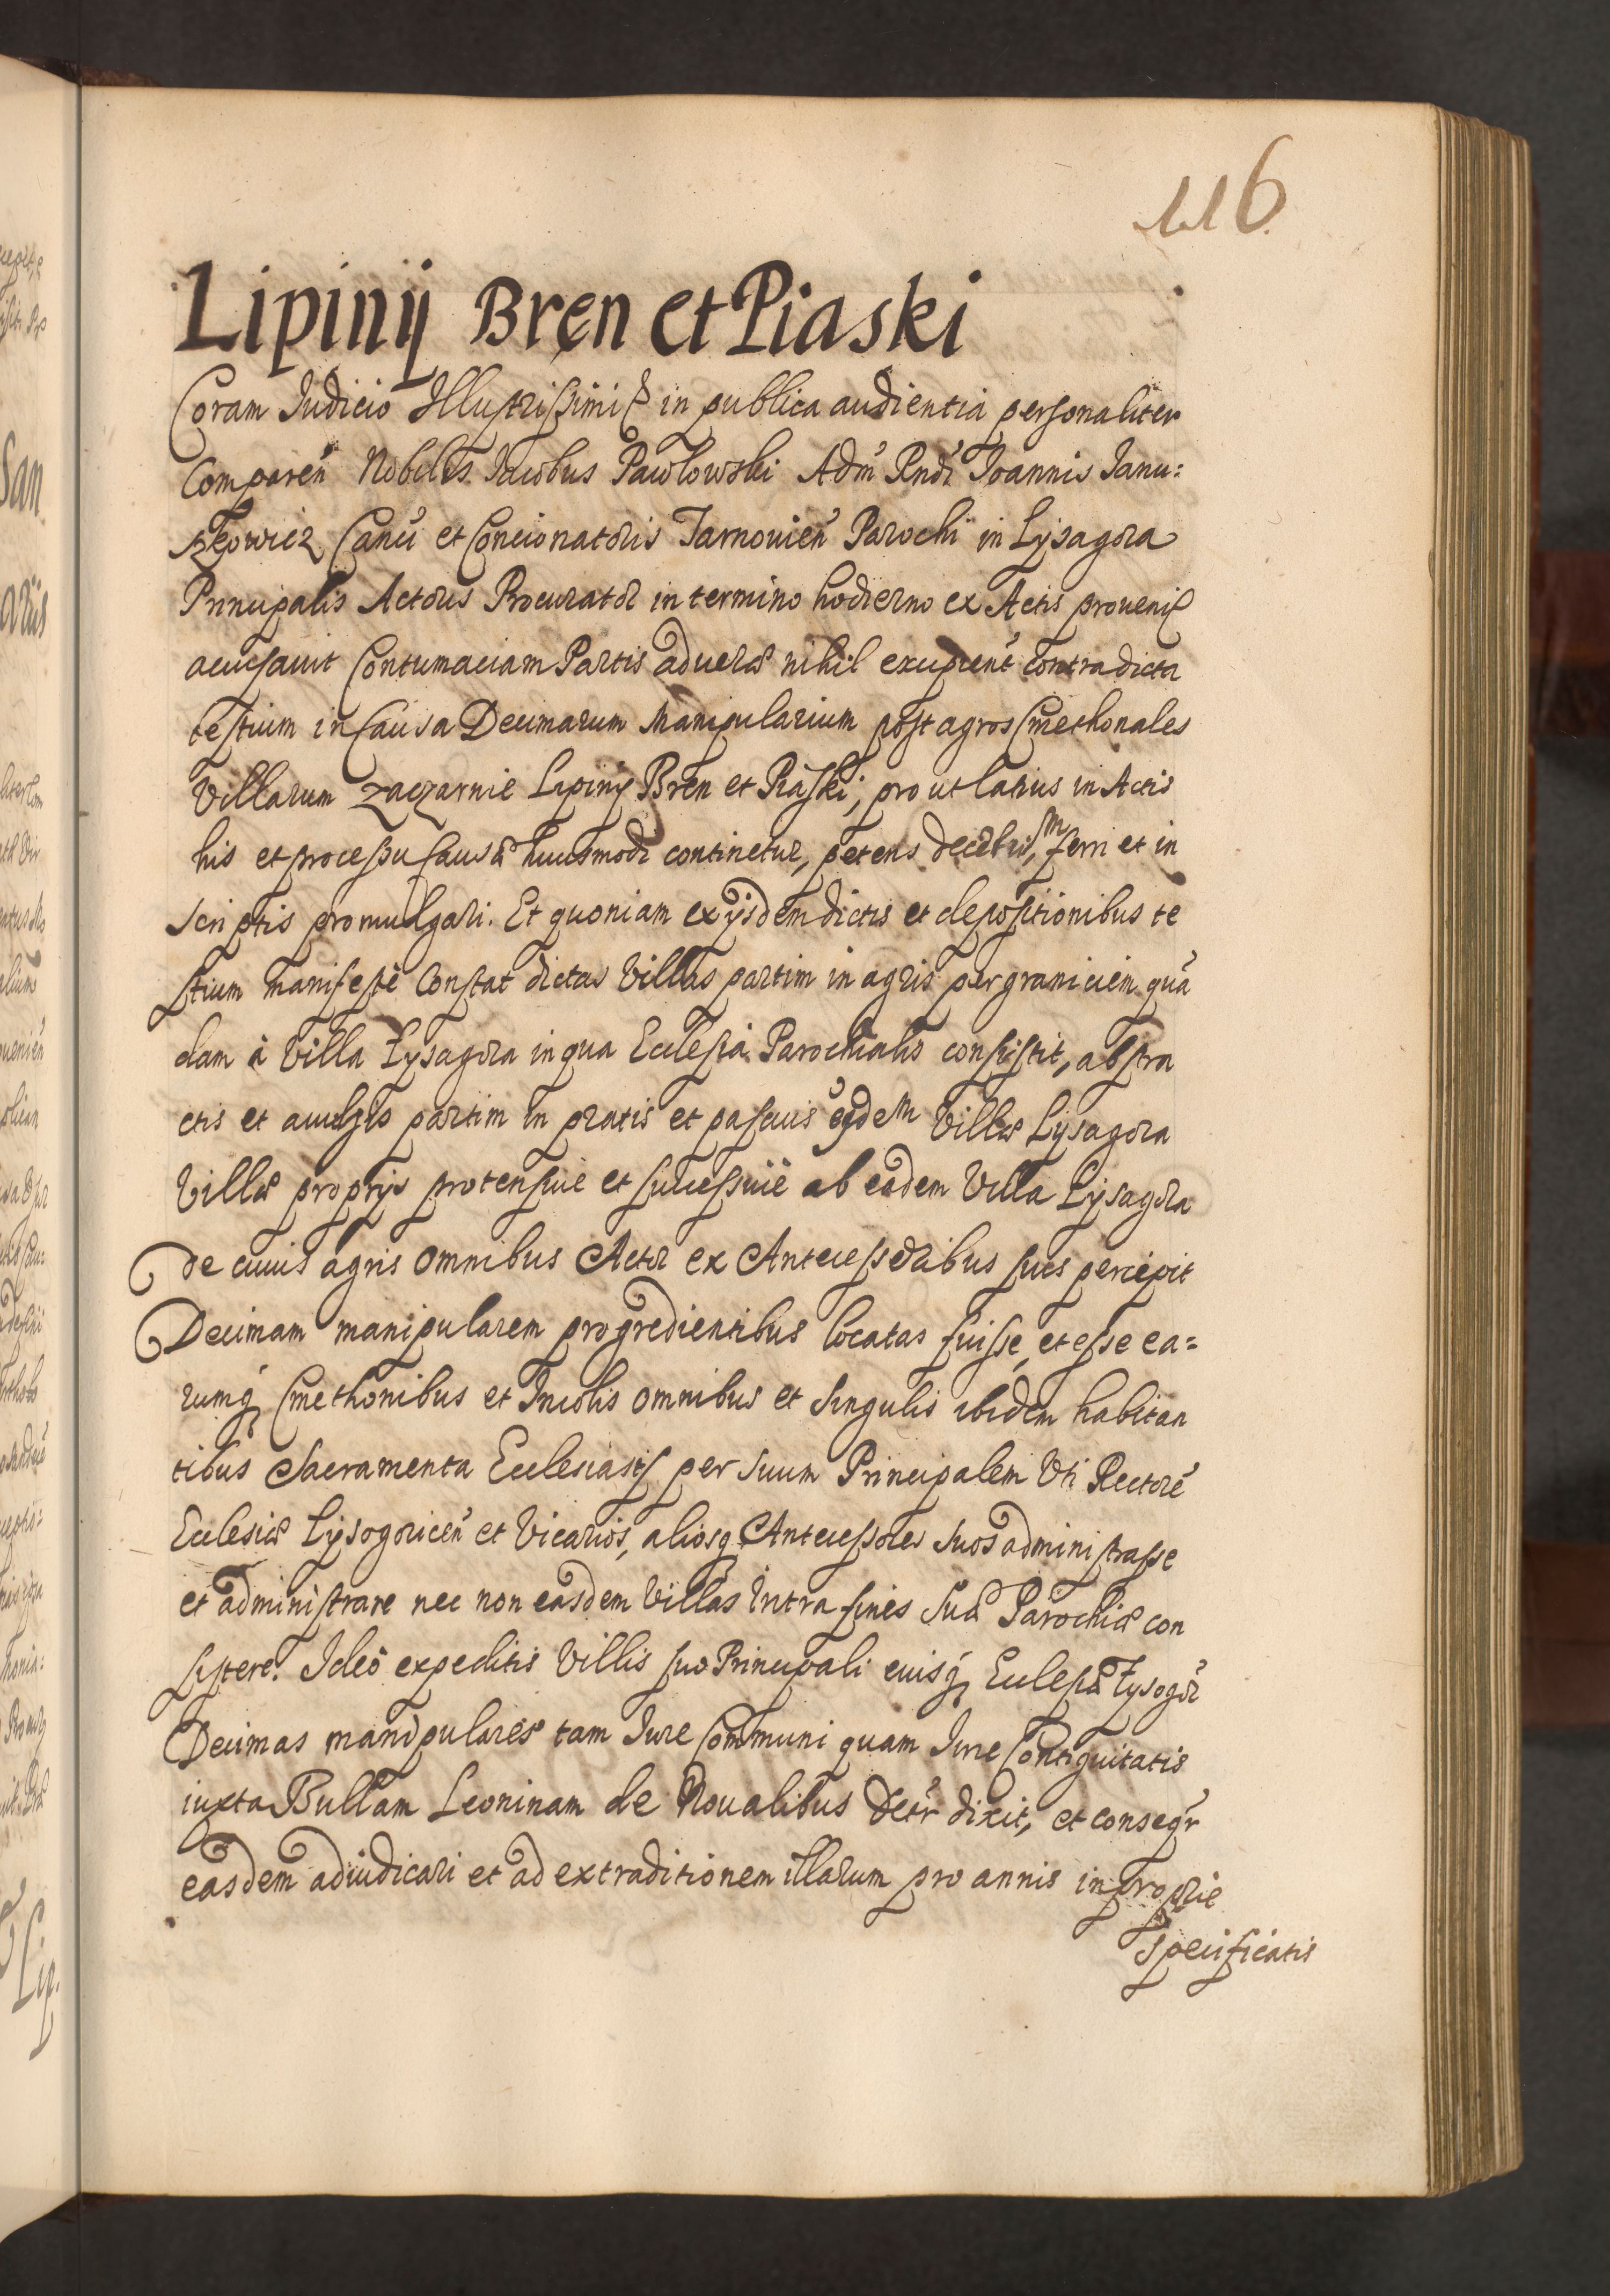 116
Lipinÿ Bren et Piaski
Coram Judicio Illustrissimi in publica audientia personaliter
Comparen Nobilis Jacobus Pawlowski Adm Rndi Joannis Janu:
szkowicz Canci et Concionatoris Tarnovien Parochi in Lysagora
Principalis Actoris Procurator in termino hodierno ex Actis provenien
accusavit Contumaciam Partis adversæ nihil excipient contra dicta
testium in Causa Decimarum Manipularium post agros Cmethonales
Villarum Zaczarnie Lipinÿ Bren et Piaski, prout latius in Actis
his et processu Causæ huiusmodi continetur, petens ferri et in
scriptis promulgari. Et quoniam ex ÿsdem dictis et depositionibus te
stium manifestè Constat dictas Villas partim in agris per graniciem quā
dam à Villa Lysagora in qua Ecclesia Parochialis consistit, abstra
ctis et avulsis partim in pratis et pascuis Villæ Lysagora
Villæ proprÿs protensivè et successivè ab eadem Villa Lysagora
de cuius agris omnibus Actor ex Antecessoribus suis percepit
Decimam manipularem progredientibus locatas fuisse, et esse ea=
rumq Cmethonibus et Incolis omnibus et singulis ibidem habitan
tibus Sacramenta Ecclesiast per suum Principalem Uti Rectorē
Ecclesiæ Lysogoricen et Vicarios, aliosq Antecessores suos administrasse
et administrare nec non easdem Villas intra fines suæ Parochiæ con
sistere. Ideò expeditis Villis suo Principali eiusq Ecclesiæ Lysogor
Decimas manipulares tam Jure Communi quam Jure Contiguitatis
iuxta Bullam Leoninam de Novalibus Dcir dixit, et conseqr
easdem adiudicari et ad extraditionem illarum pro annis in
specificatis